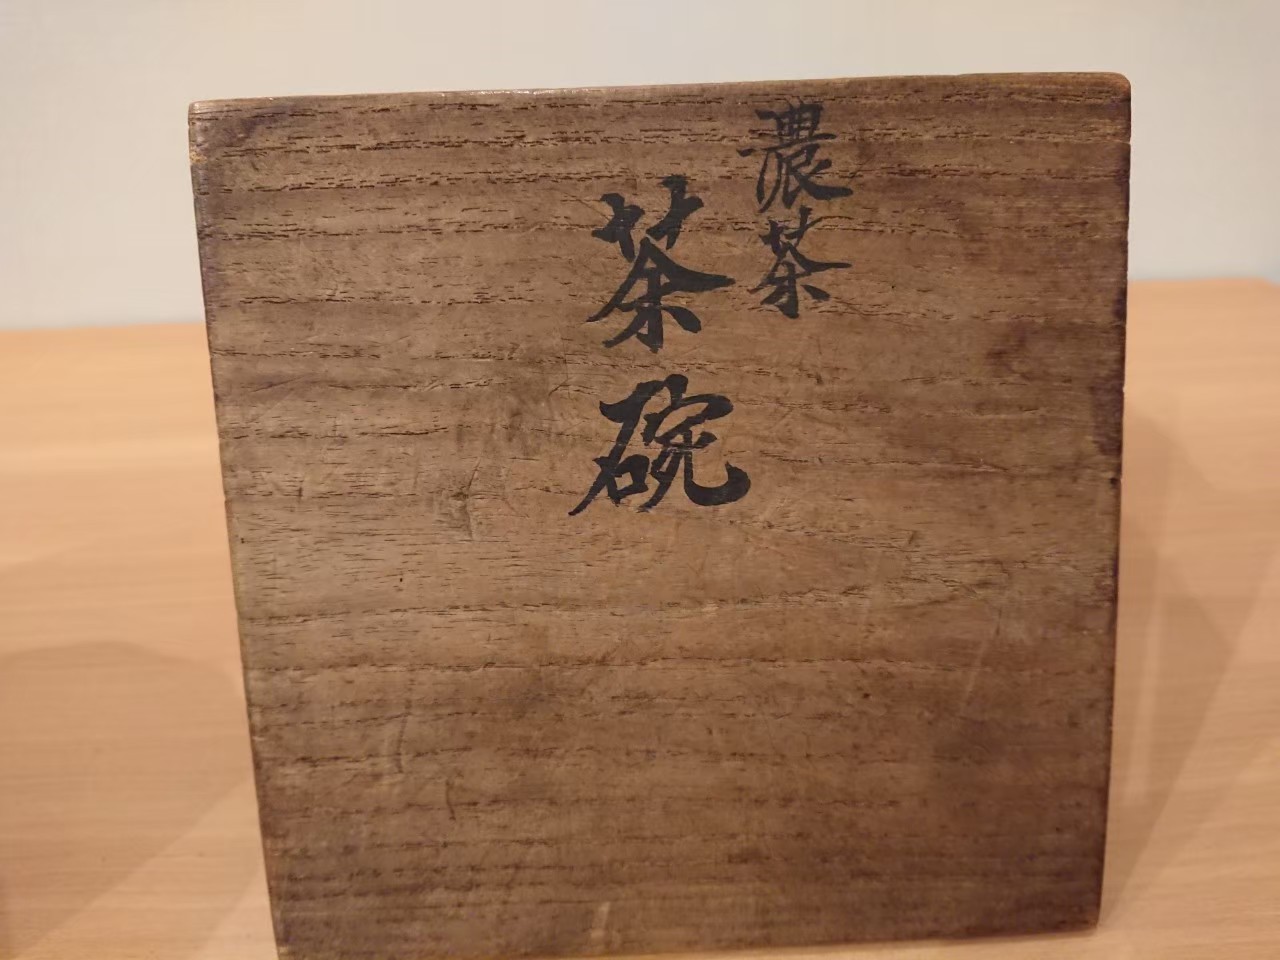 濃茶
茶碗